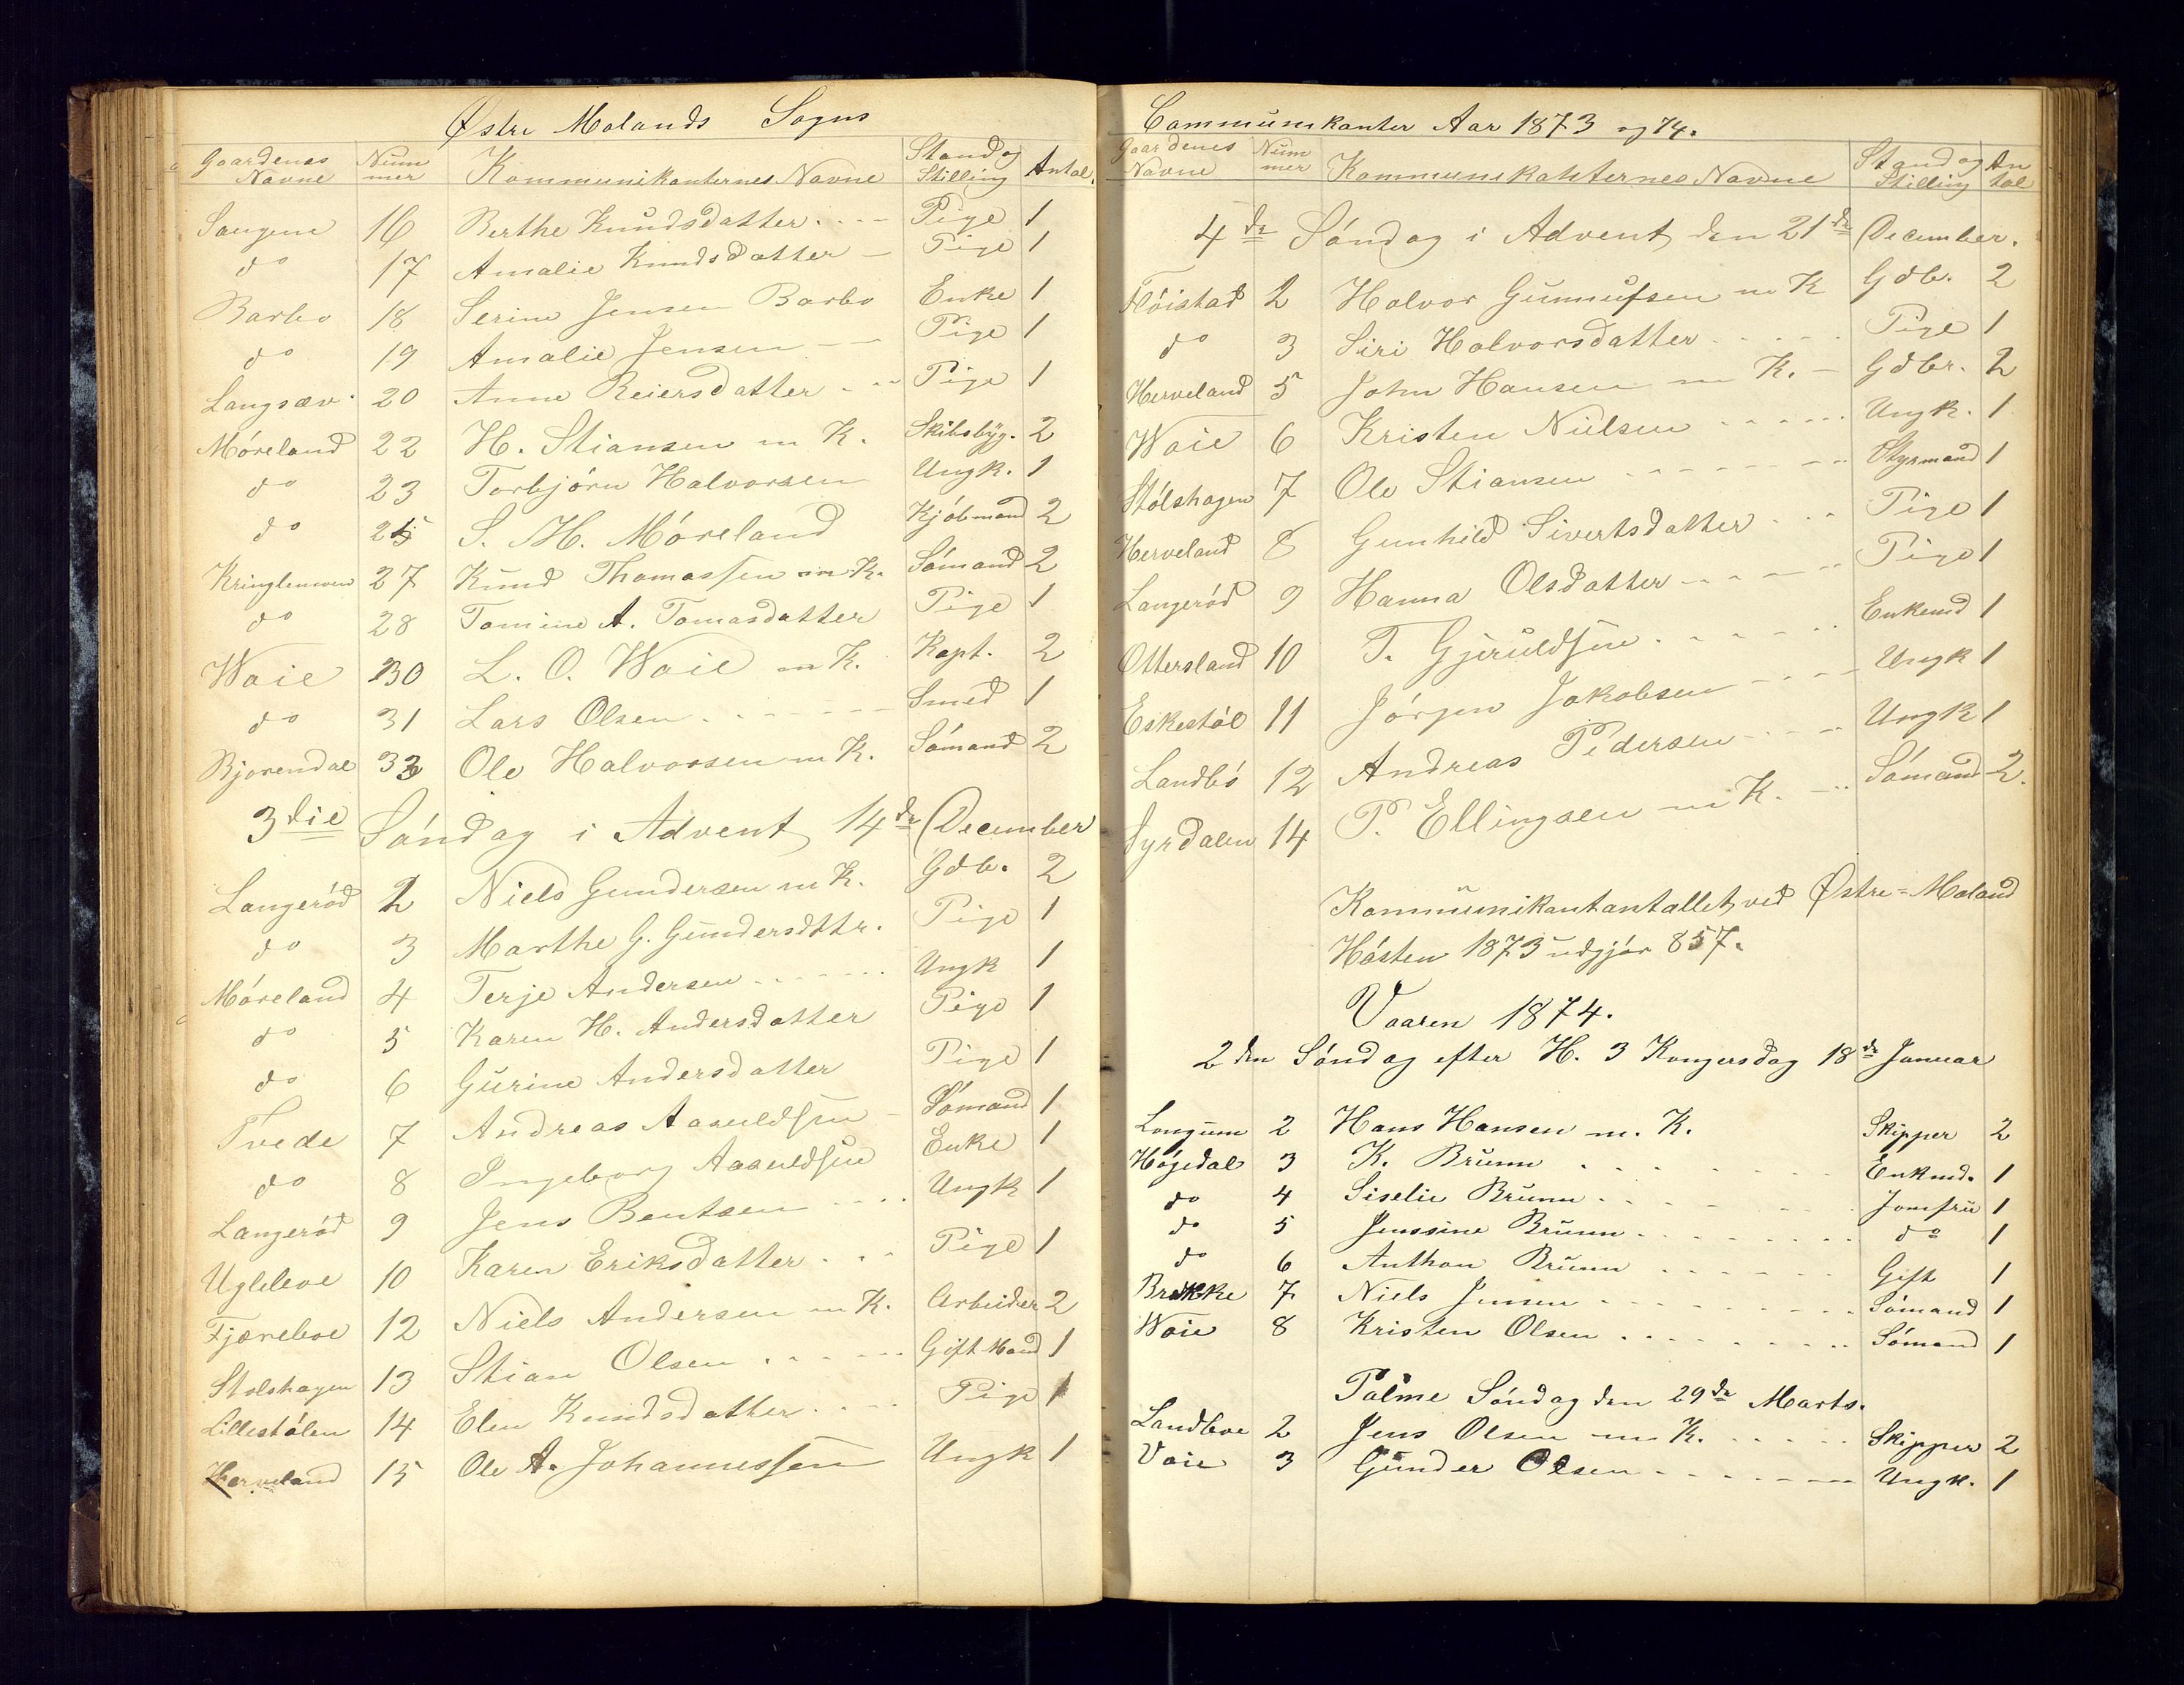 Østre Molands Sogns
Gaardenes Navne Num mer Kommunikanternes Navne Stand og Stilling Antal.
Saugene 16 Berthe Knudsdatter Pige 1
do 17 Amalie Knudsdatter Pige 1
Barbo 18 Serine Jensen Barbo Enke 1
do 19 Amalie Jensen Pige 1
Langsæv 20 Anne Reiersdatter Pige 1
Móreland 22 H. Stiansen m K. Skibsbyg. 2
do 23 Torbjórn Halvorsen Ungk. 1
do 25 S. M. Móreland Kjóbmand 2
Kringlemoen 27 Knud Thomassen m K. Sómand 2
do 28 Tomine A. Tomasdatter Pige 1
Woie 30 L. O. Woie m K. Kapt. 2
do 31 Lars Olsen Smed 1
Bjorendal 33 Ole Halvorsen m K. Sómand 2
3die Sóndag i Advent 14de December
Langeród 2 Niels Gundersen m K. Gdb. 2
do 3 Marthe G. Gundersdttr. Pige 1
Móreland 4 Terje Andersen Ungk 1
do 5 Karen H. Andersdatter Pige 1
do 6 Gurine Andersdatter Pige 1
Tvede 7 Andreas Aasuldsen Sómand 1
do 8 Ingeborg Aasuldsen Enke 1
Langeród 9 Jens Bentsen Ungk 1
Ugleboe 10 Karen Eriksdatter Pige 1
Fjæreboe 12 Niels Andersen m K. Arbeider 2
Stolshagen 13 Stian Olsen Gift Mand 1
Lillestólen 14 Elen Knudsdatter Pige 1
Herveland 15 Ole A. Johannessen Ungk 1
Communikanter Aar 1873 og 74.
Gaardenes Navne Num mer Kommunikanternes Navne Stand og Stilling An tal
4de Sóndag i Advent den 21de December.
Flóistad 2 Halvor Gunnufsen m K Gdb. 2
do 3 Siri Halvorsdatter Pige 1
Herveland 5 John Hansen m K. Gdbr. 2
Woie 6 Kristen Nielsen Ungk. 1
Stólshagen 7 Ole Stiansen Styrmand 1
Herveland 8 Gunhild Sivertsdatter Pige 1
Langeród 9 Hanna Olsdatter Pige 1
Ottersland 10 T. Gjeruldsen Enkemd 1
Eskestól 11 Jórgen Jakobsen Ungk 1
Landbó 12 Andreas Pedersen Ungk 1
Syrdalen 14 P. Ellingsen m K. Sómand 2.
Kommunikantantallet ved Østre=Moland
Hósten 1873 udgjór 857.
Vaaren 1874.
2den Sóndag efter H. 3 Kongersdag 18de Januar
Longum 2 Hans Hansen m. K. Skipper 2
Hógedal 3 K. Brunn Enkmd. 1
do 4 Siselie Brunn Jomfru 1
do 5 Jenssine Brunn do 1
do 6 Anthon Brunn Gift 1
Brekke 7 Niels Jensen Sómand 1
Woie 8 Kristen Olsen Sómand 1
Palme Sóndag den 29de Marts.
Landboe 2 Jens Olsen m K. Skipper 2
Voie 3 Gunder Olsen Ungk. 1